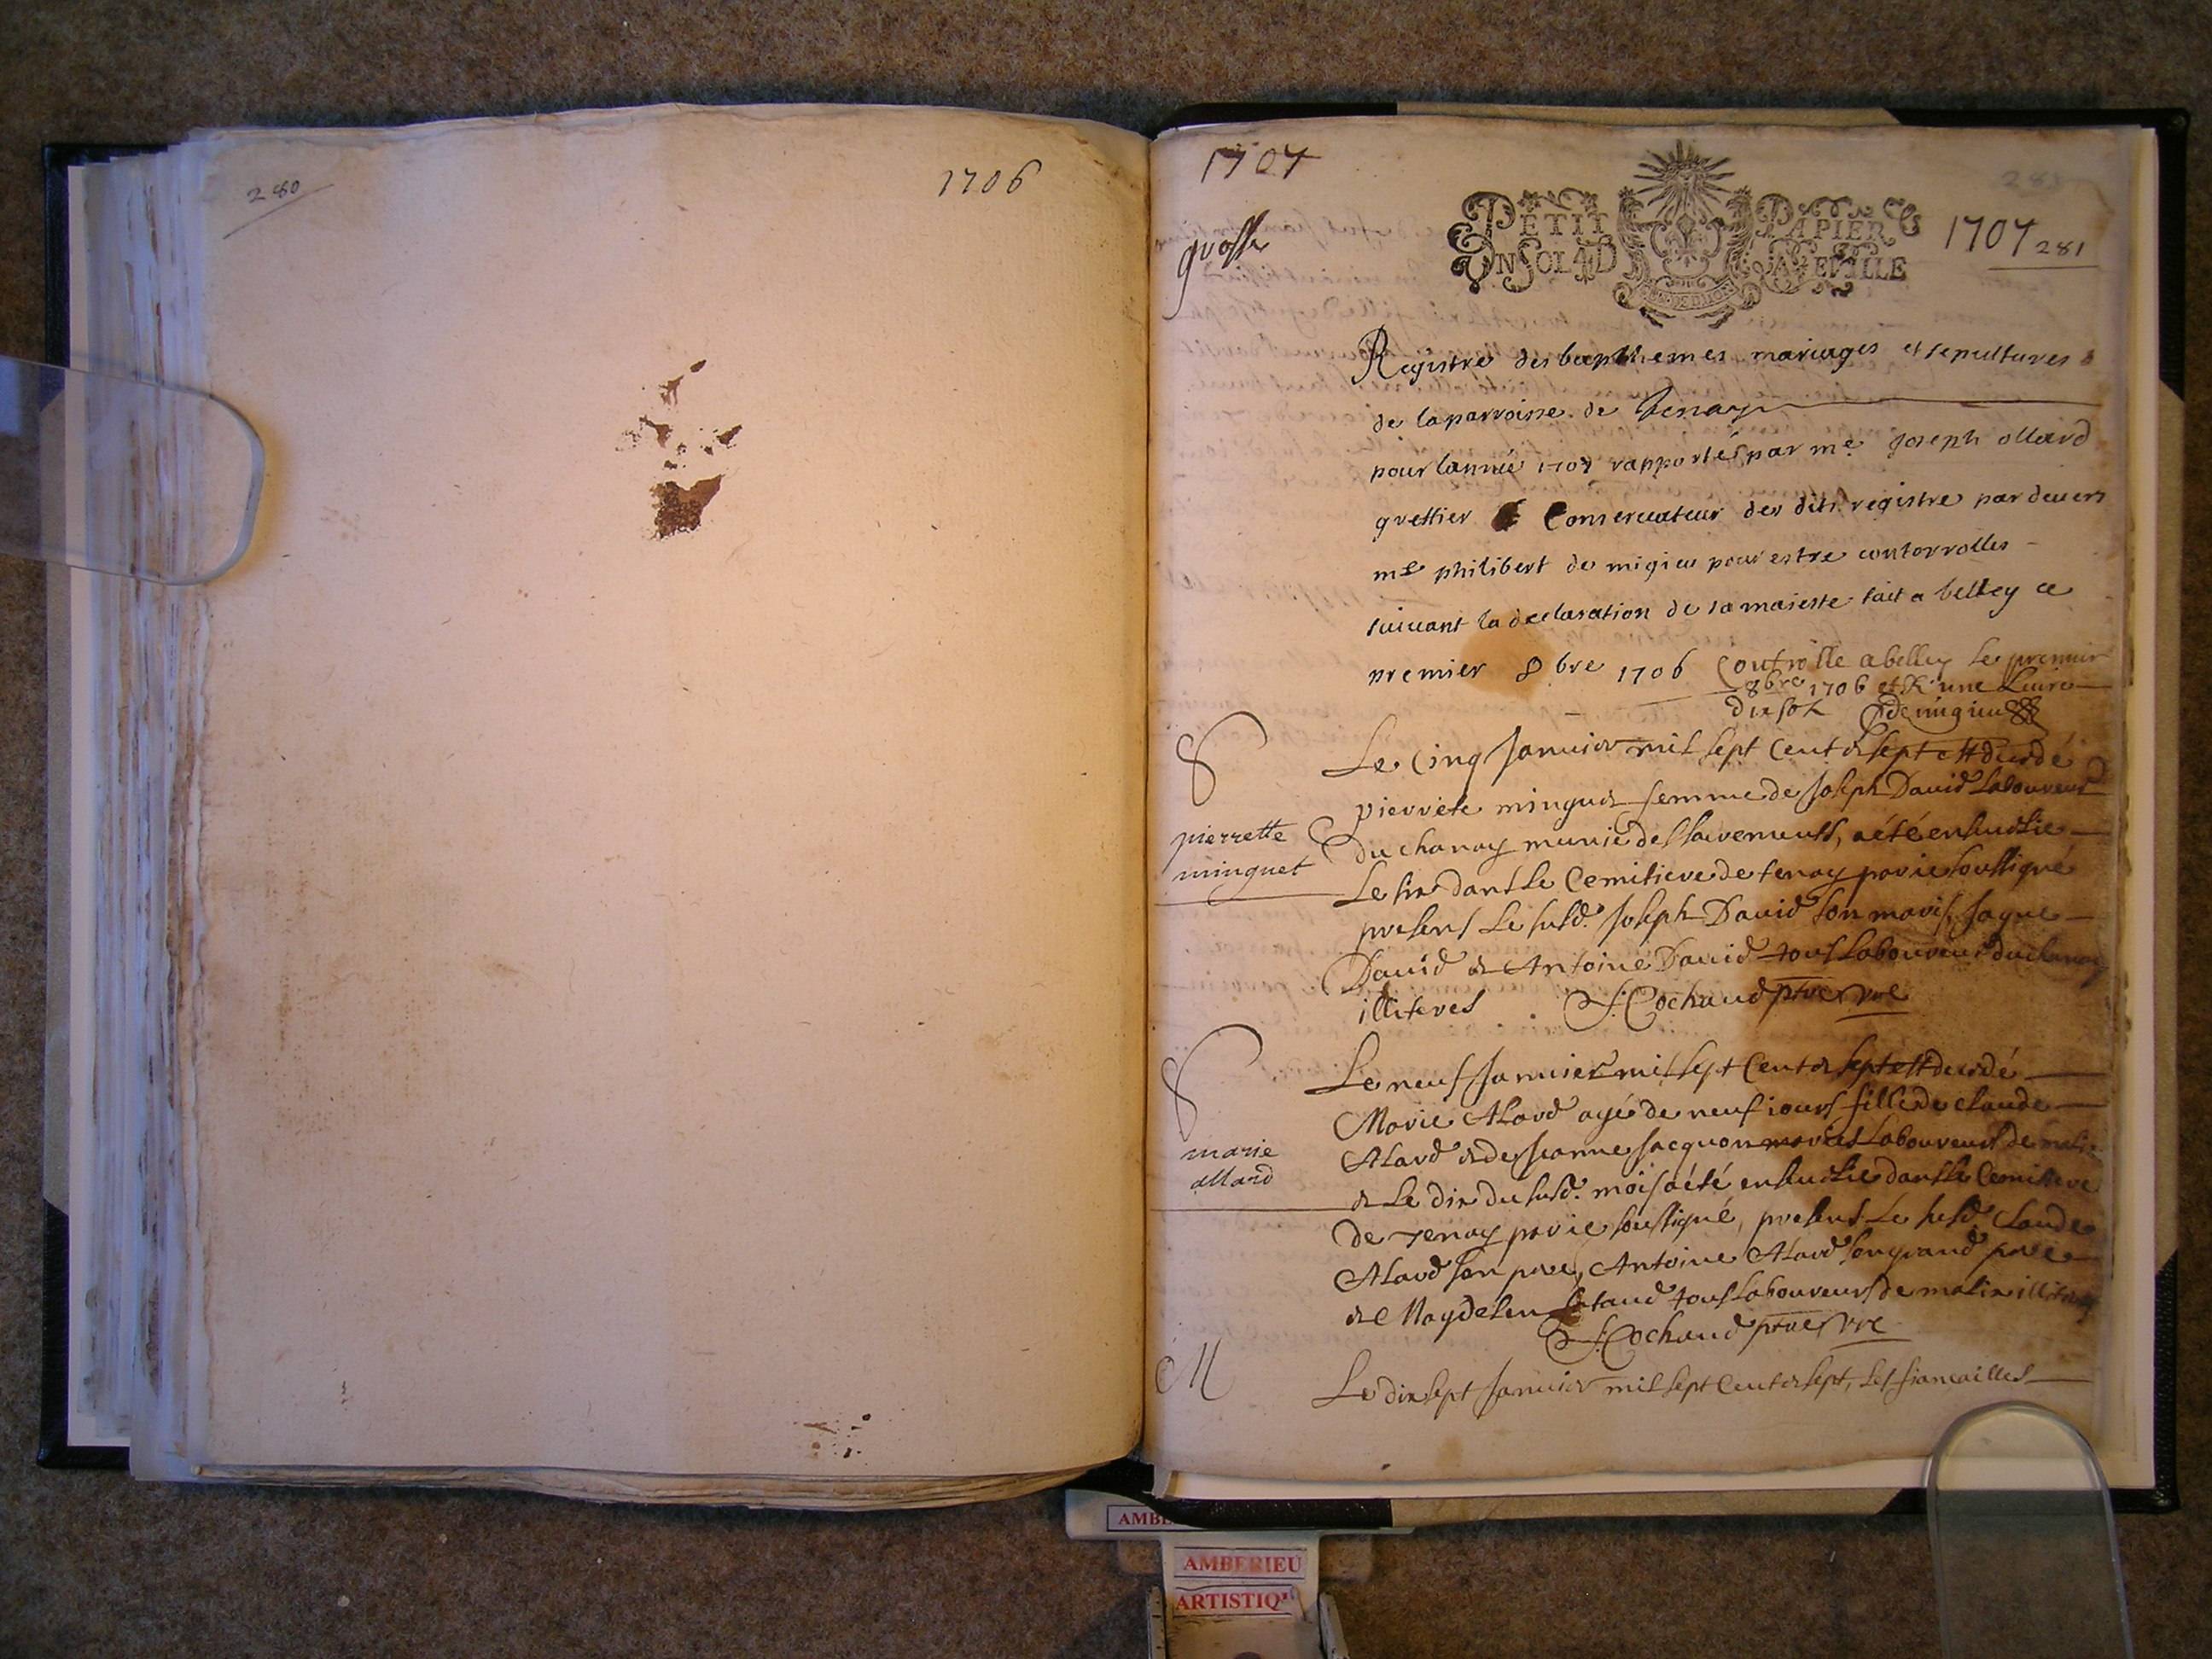 280
1706
1707
grosse
PETIT PAPIER
UN SOL 4 D LA FEVILLE
1707 281
Registre des bapthemes mariages et sepultures
de la parroisse de Tenay
pour lannée 1707 rapportés par me Joseph ollard
greffier Conservateur des dits registre par devers
me philibert de migieu pour estre contorrolles
suivant la declaration de sa maieste fait a belley ce
premier 8bre 1706 Controlle a belley le premier
8bre 1706 et R. une Livre
dix sols demigieu
S
pierrette
minguet
Le cinq Januier mil sept Cent & sept est decedé
pierrete minguet femme de Joseph Dauid Laboureur
du chanay munie des sacrements, a été enseuelie
Le six dans le Cemitiere de tenay par ie soussigné
presens Le susd. Joseph Dauid son maris, Jaque
Dauid & Antoine Dauid tous Laboureur du chanay
illiteres J. Cochaud ptre vre
S
marie
allard
Le neuf Januier mil sept Cent & sept est decedé
Marie Alard agée de neuf iours fille de claude
Alard & de Jeanne Jacquon mariés Laboureurs de malix
& Le dix du susd. mois a été enseuelie dans le Cemitiere
de Tenay par ie soussigné, presens Le susd. Claude
Alard son pere, Antoine Alard son grand pere
& Magdelen tous Laboureurs de malix illiteres
J. Cochaud ptre vre
M
Le dix sept Januier mil sept Cent & sept, les fiancailles
AMBERIEU
ARTISTIQ